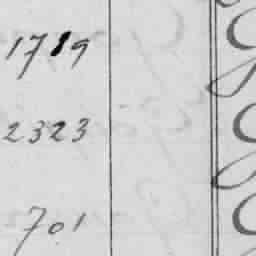 1719
2323
701